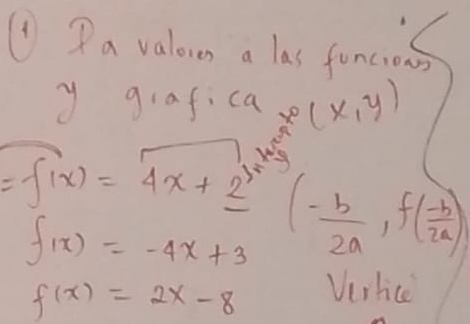 ① Da valores a las funciones
y grafica (x,y)
= f(x) = 4x + 2 Intercepto y
f(x) = -4x + 3
f(x) = 2x - 8
(-b/2a, f(-b/2a))
Vertice